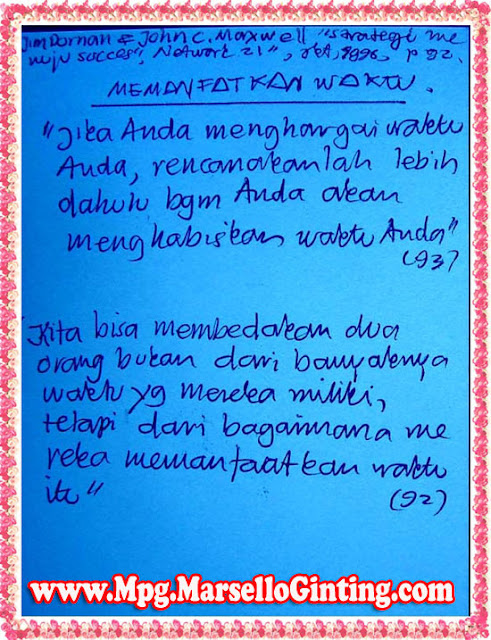 Jim Dornan & John C. Maxwell "strategi me
nuju succes", Network 21", jkt, 1996, p 92.
MEMANFATKAN WAKTU.
"Jika Anda menghargai waktu
Anda, rencanakanlah lebih
dahulu bgm Anda akan
menghabiskan waktu Anda"
(93)
Kita bisa membedakan dua
orang bukan dari banyaknya
waktu yg mereka miliki,
tetapi dari bagaimana me
reka memanfaatkan waktu
itu"
(92)
www.Mpg.MarselloGinting.com